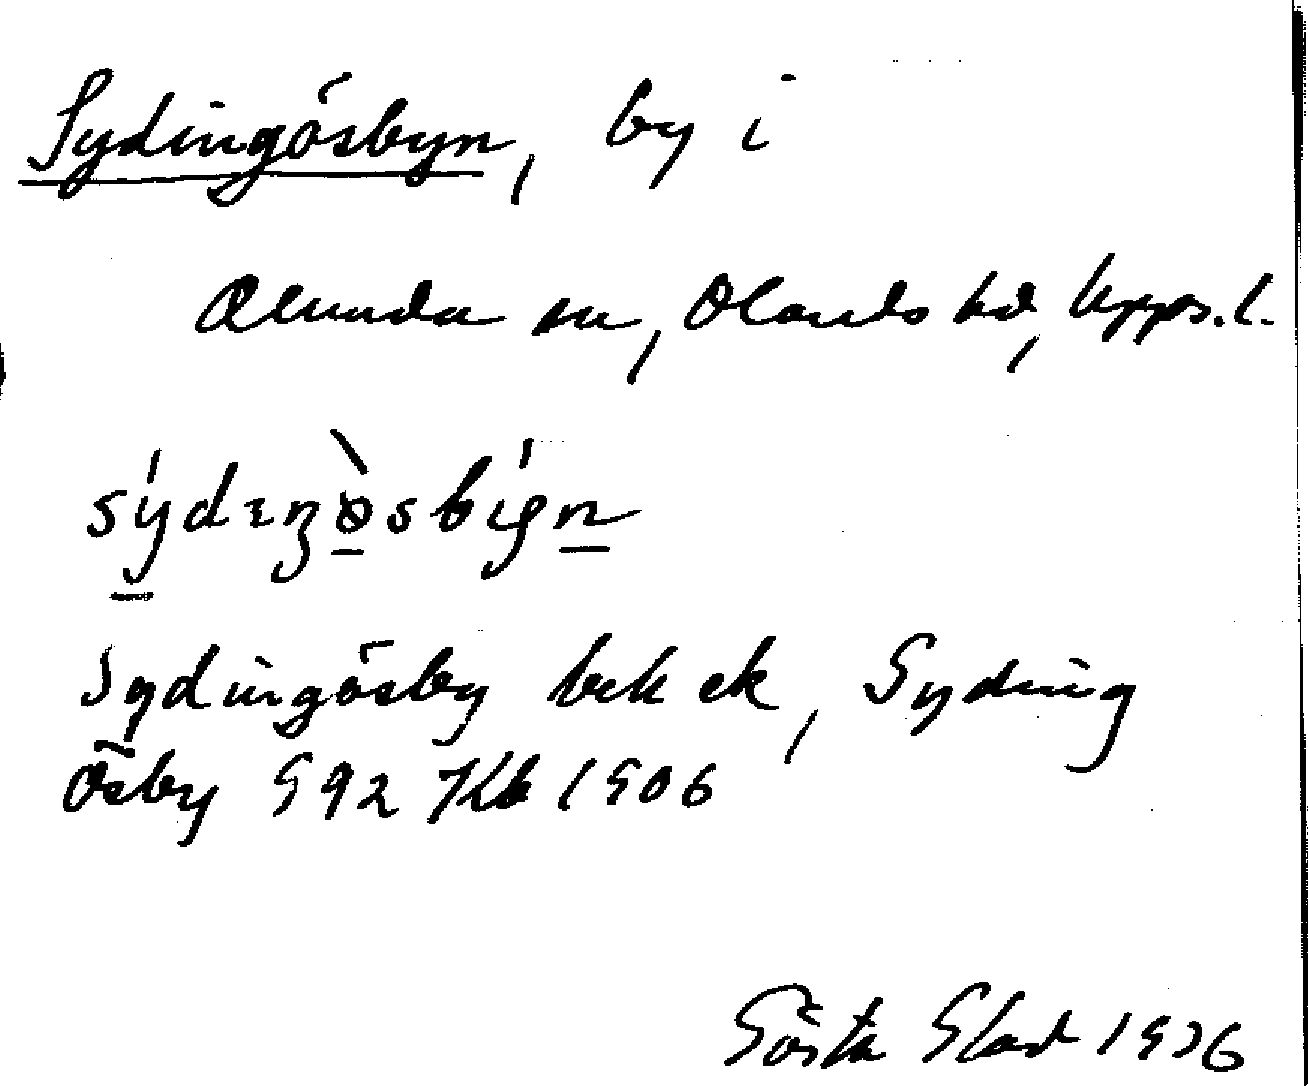 Sydingösbyn, by i
Alunda sn, Olands hd, Upps. l.
Sydingösby bek ek, Syding
Ösby 992 Kb 1906
Gösta Glad 1936